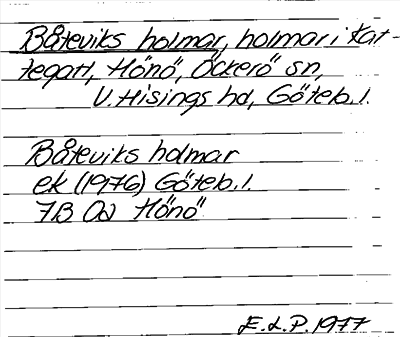 Båteviks holmar, holmar i Kat-
tegatt, Hönö, Öckerö sn,
V. Hisings hd, Göteb. l.
Båteviks holmar
ek (1976) Göteb. l.
7B Od Hönö
E. L. P. 1977